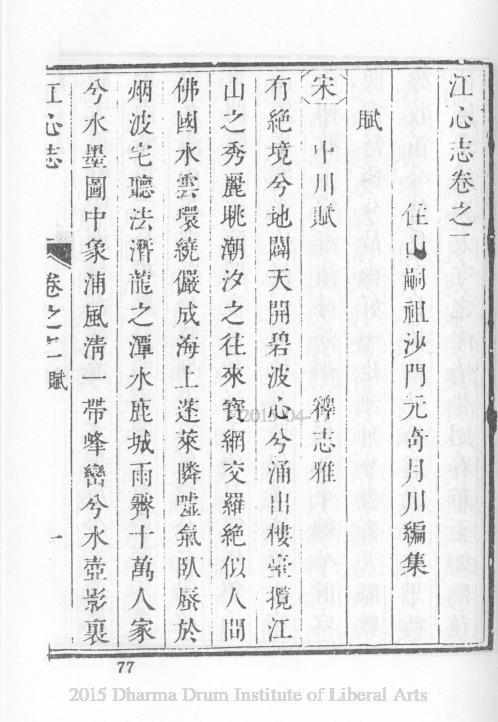 江心志卷之二
住山嗣祖沙門元奇月川編集
賦
宋 中川賦 釋志雅
有絕境兮地闢天開碧波心兮涌出樓臺攬江
山之秀麗眺潮汐之往來寶網交羅絕似人間
佛國水雲環繞儼成海上蓬萊隣噓氣臥蜃於
烟波宅聽法潛龍之潭水鹿城雨霽十萬人家
兮水墨圖中象浦風清一帶峰巒兮水壺影裏
江心志 卷之二 賦 一
77
2015 Dharma Drum Institute of Liberal Arts